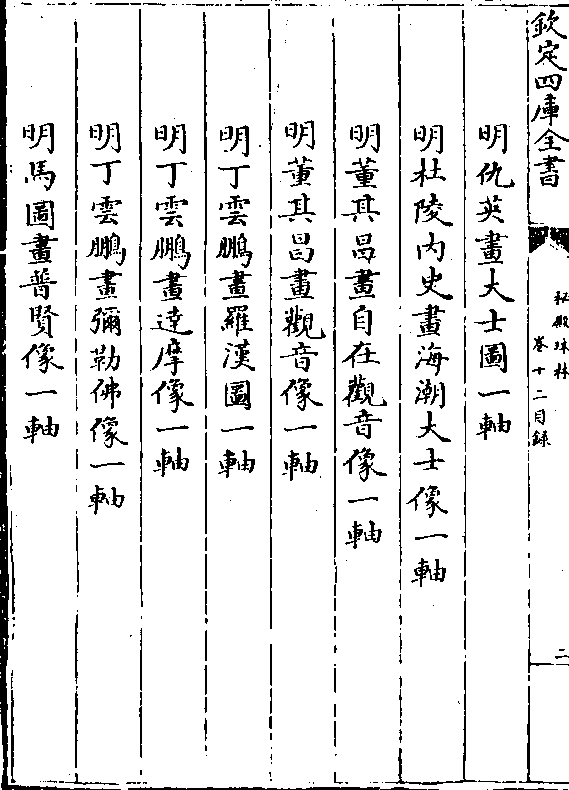 欽定四庫全書
秘殿珠林
卷十二目録
二
明仇英畫大士圖一軸
明杜陵内史畫海潮大士像一軸
明董其昌畫自在觀音像一軸
明董其昌畫觀音像一軸
明丁雲鵬畫羅漢圖一軸
明丁雲鵬畫達摩像一軸
明丁雲鵬畫彌勒佛像一軸
明馬圖畫普賢像一軸